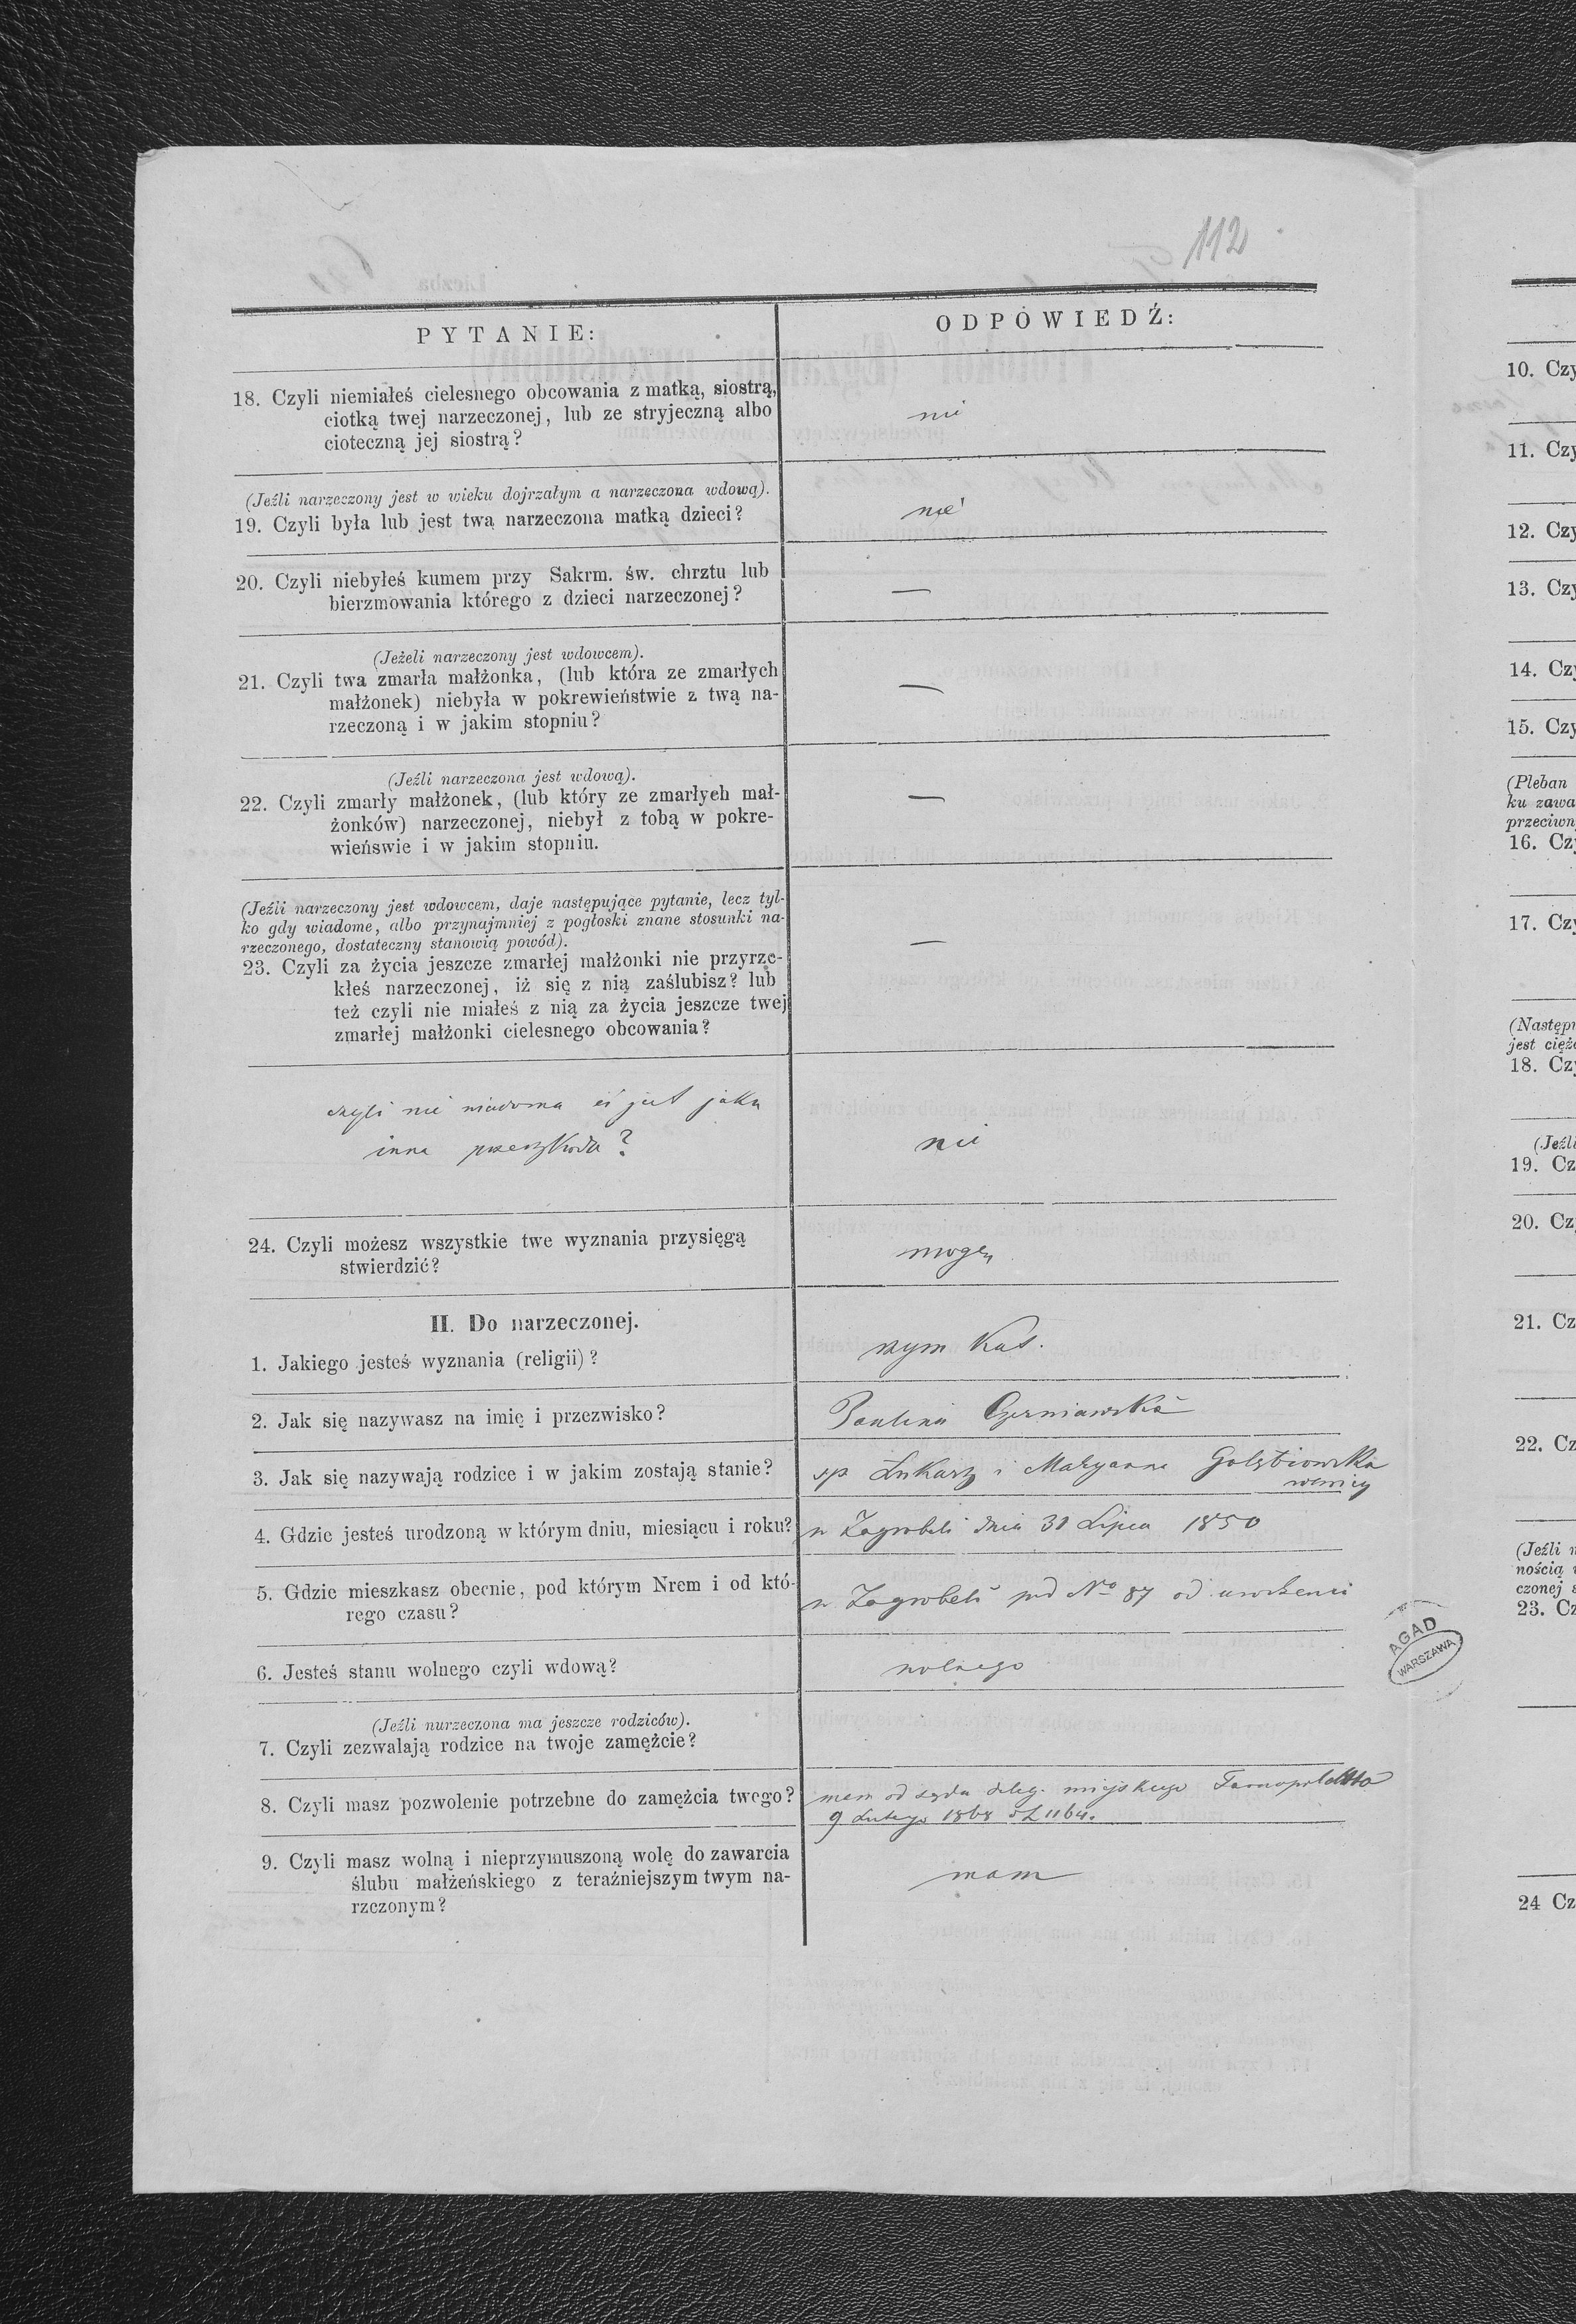 112
PYTANIE:
ODPOWIEDŹ:
18. Czyli niemiałeś cielesnego obcowania z matką, siostrą,
ciotką twej narzeczonej, lub ze stryjeczną albo
cioteczną jej siostrą?
nie
(Jeźli narzeczony jest w wieku dojrzałym a narzeczona wdową).
19. Czyli była lub jest twa narzeczona matką dzieci?
nie
20. Czyli niebyłeś kumem przy Sakrm. św. chrztu lub
bierzmowania którego z dzieci narzeczonej?
—
(Jeżeli narzeczony jest wdowcem).
21. Czyli twa zmarła małżonka, (lub która ze zmarłych
małżonek) niebyła w pokrewieństwie z twą na-
rzeczoną i w jakim stopniu?
—
(Jeźli narzeczona jest wdową).
22. Czyli zmarły małżonek, (lub który ze zmarłych mał-
żonków) narzeczonej, niebył z tobą w pokre-
wieńswie i w jakim stopniu.
—
(Jeźli narzeczony jest wdowcem, daje następujące pytanie, lecz tyl-
ko gdy wiadome, albo przynajmniej z pogłoski znane stosunki na-
rzeczonego, dostateczny stanowią powód).
23. Czyli za życia jeszcze zmarłej małżonki nie przyrze-
kłeś narzeczonej, iż się z nią zaślubisz? lub
też czyli nie miałeś z nią za życia jeszcze twej
zmarłej małżonki cielesnego obcowania?
—
czyli nie wiadoma ci jest jaka
inna przeszkoda?
nie
24. Czyli możesz wszystkie twe wyznania przysięgą
stwierdzić?
mogę
II. Do narzeczonej.
1. Jakiego jesteś wyznania (religii)?
rzym Kat.
2. Jak się nazywasz na imię i przezwisko?
Paulina Czerniawska
3. Jak się nazywają rodzice i w jakim zostają stanie?
sp Łukasz i Maryanna Gołębiowska
4. Gdzie jesteś urodzoną w którym dniu, miesiącu i roku?
w Zagrobeli dnia 30 Lipca 1850
5. Gdzie mieszkasz obecnie, pod którym Nrem i od któ-
rego czasu?
w Zagrobeli pod No 87 od urodzenia
6. Jesteś stanu wolnego czyli wdową?
wolnego
(Jeźli nurzeczona ma jeszcze rodziców).
7. Czyli zezwalają rodzice na twoje zamężcie?
8. Czyli masz pozwolenie potrzebne do zamężcia twego?
mam od sądu deleg. miejskiego
9 Lutego 1868 L 1164.
9. Czyli masz wolną i nieprzymuszoną wolę do zawarcia
ślubu małżeńskiego z teraźniejszym twym na-
rzczonym?
mam
AGAD
WARSZAWA
10. Czy
11. Czy
12. Czy
13. Czy
14. Czy
15. Czy
(Pleban
ku zawa
przeciwn
16. Czy
17. Czy
(Następn
jest cięż
18. Czy
(Jeźli
19. Cz
20. Cz
21. Cz
22. Cz
(Jeźli n
nością
czonej s
23. Cz
24 Cz